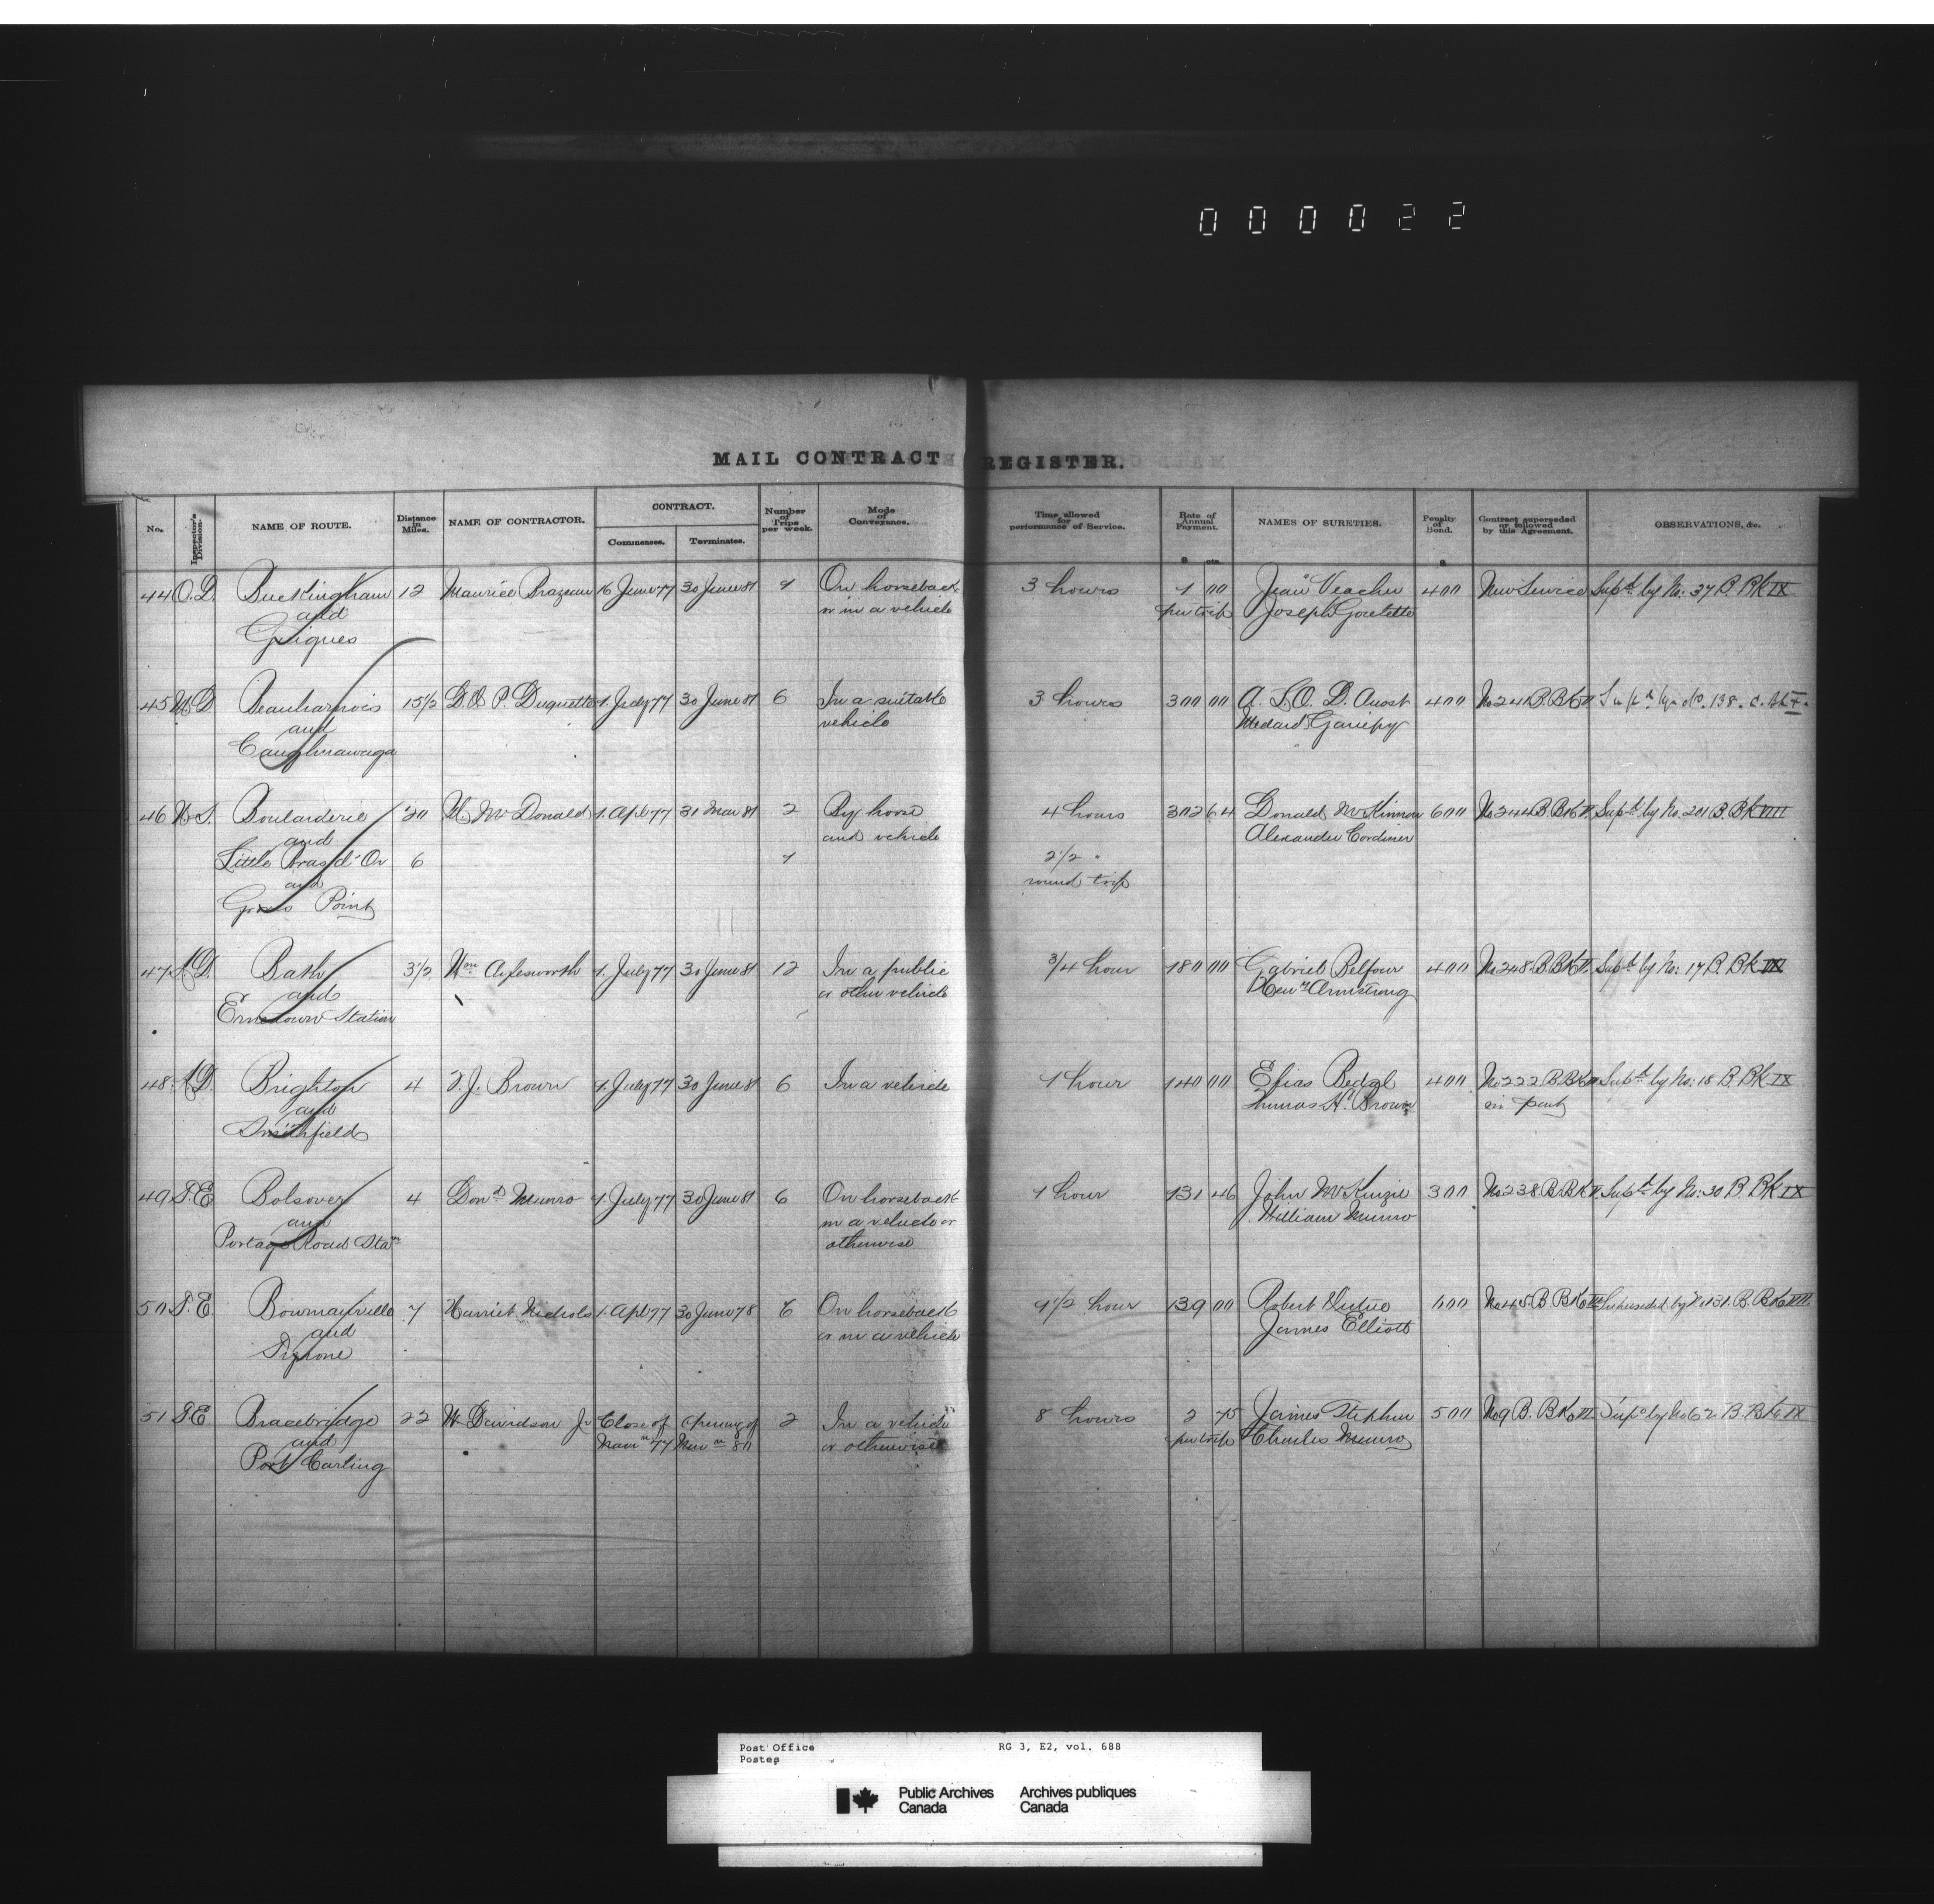 000022
MAIL CONTRACT REGISTER.
No. Inspector's Division. NAME OF ROUTE. Distance in Miles. NAME OF CONTRACTOR. CONTRACT. Commences. Terminates. Number of Trips per week. Mode of Conveyance. Time allowed for performance of Service. Rate of Annual Payment. $ cts. NAMES OF SURETIES. Penalty of Bond. $ Contract superseded or followed by this Agreement. OBSERVATIONS, &c.
44 O.D. Buckingham 12 Maurice Brazeau 16 June 77 30 June 81 1 On horseback 3 hours 1 00 Jean Veacher 400 New Service Supd by No: 37 B. Bk IX
and or in a vehicle per trip Joseph Goulette
45 M.D. Beauharnois 15½ G.O.P. Duquette 1. July 77 30 June 81 6 In a suitable 3 hours 300 00 A. S. O. D. 400 No 241 B. Bk Supd by No. 138. C. Bk
and vehicle Medard Gariepy
Caughnawaga
46 N.S. Boularderie 20 McDonald 1. Apl 77 31 Mar 81 2 By horse 4 hours 302 64 Donald McKinnon 600 No 244 B. Bk Supd by No. 201 B. Bk VIII
and and vehicle Alexander Cordiner
Little Bras d'Or 6 1 2½ "
and round trip
Point
47 K.D. Bath 3½ Wm Aylesworth 1. July 77 30 June 81 12 In a public ¾ hour 180 00 Gabriel Belfour 400 No 248 B. Bk Supd by No: 17 B. Bk IX
and or other vehicle Armstrong
Ernestown Station
48 K.D. Brighton 4 J. Brown 1. July 77 30 June 81 6 In a vehicle 1 hour 140 00 Elias Bedal 400 No 222 B. Bk Supd by No: 18 B. Bk IX
and Thomas H. Brown in part
Smithfield
49 T.E. Bolsover 4 Dond Munro 1 July 77 30 June 81 6 On horseback 1 hour 131 46 John McKinzie 300 No 238 B. Bk Supd by No: 30 B. Bk IX
and in a vehicle or William Munro
Portage Road Stan otherwise
50 T.E. Bowmanville 7 Harriet Nichols 1. Apl 77 30 June 78 6 On horseback 1½ hour 139 00 Robert 600 No 45 B Bk Superseded by No 131. B. Bk VII
and or in a vehicle James Elliott
Tyrone
51 T.E. Bracebridge 22 W. Davidson Jr Close of opening of 2 In a vehicle 8 hours 2 75 James Stephen 500 No 9 B. Bk VI Supd by No 62 B. Bk IX
and Navn 77 Navn 80 or otherwise per trip Charles Munro
Port Carling
Post Office RG 3, E2, vol. 688
Postes
Public Archives Archives publiques
Canada Canada